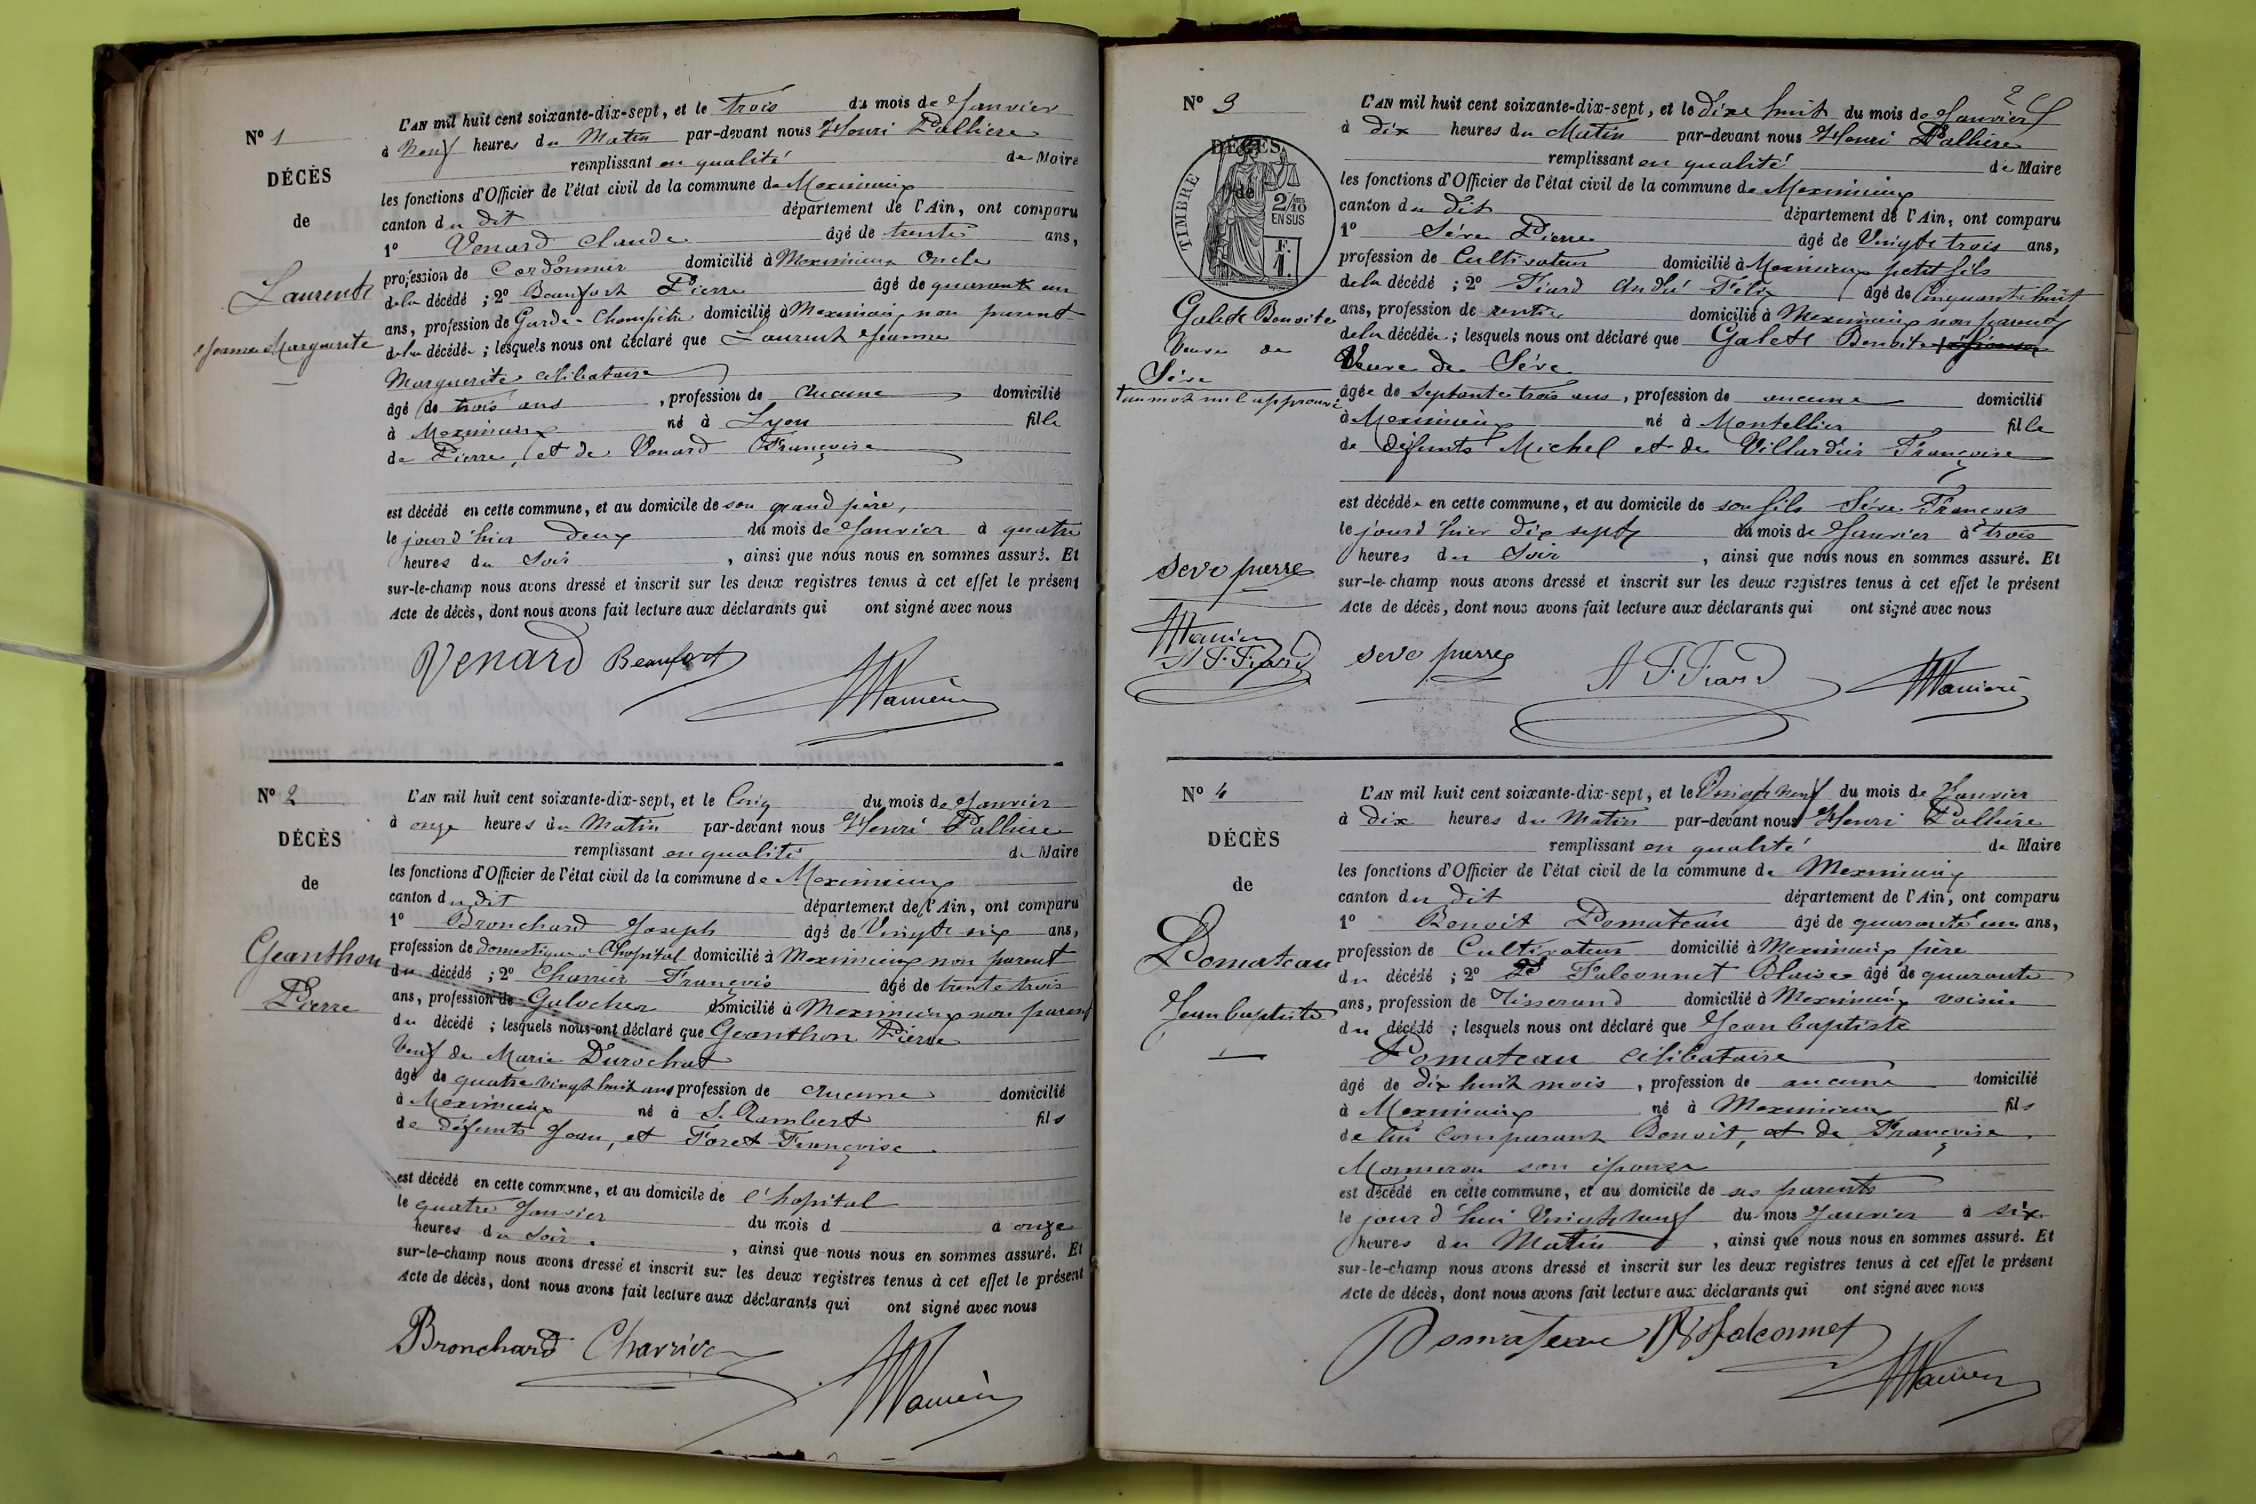 N° 1
DÉCÈS
de
Laurent
Jeanne Marguerite
L'AN mil huit cent soixante-dix-sept, et le trois du mois de Janvier
à Neuf heures du Matin par-devant nous Henri Pallière
remplissant en qualité de Maire
les fonctions d'Officier de l'état civil de la commune de Meximieux
canton du dit département de l'Ain, ont comparu
1° Venard Claude âgé de trente ans,
profession de Cordonnier domicilié à Meximieux Oncle
de la décédé ; 2° Beaufort Pierre âgé de quarante un
ans, profession de Garde-Champêtre domicilié à Meximieux, non parent
de la décédée ; lesquels nous ont déclaré que Laurent Jeanne
Marguerite célibataire
âgé de trois ans , profession de Aucune domicilié
à Meximieux né à Lyon fille
de Pierre, et de Venard Françoise
est décédé en cette commune, et au domicile de son grand père,
le jour d'hier Deux du mois de Janvier à quatre
heures du Soir , ainsi que nous nous en sommes assuré. Et
sur-le-champ nous avons dressé et inscrit sur les deux registres tenus à cet effet le présent
Acte de décès, dont nous avons fait lecture aux déclarants qui ont signé avec nous
Venard Beaufort
N° 2
DÉCÈS
de
Geanthon
Pierre
L'AN mil huit cent soixante-dix-sept, et le Cinq du mois de Janvier
à onze heures du Matin par-devant nous Henri Pallière
remplissant en qualité de Maire
les fonctions d'Officier de l'état civil de la commune de Meximieux
canton du dit département de l'Ain, ont comparu
1° Bronchard Joseph âgé de Vingt six ans,
profession de domestique à l'hopital domicilié à Meximieux non parent
du décédé ; 2° Charrier François âgé de trente trois
ans, profession de Galocher domicilié à Meximieux non parent
du décédé ; lesquels nous ont déclaré que Geanthon Pierre
Veuf de Marie Durochat
âgé de quatre vingt huit ans profession de Aucune domicilié
à Meximieux né à S. Rambert fils
de défunts Jean, et Foret Françoise
est décédé en cette commune, et au domicile de l'hopital
le quatre Janvier du mois d à onze
heures du Soir. , ainsi que nous nous en sommes assuré. Et
sur-le-champ nous avons dressé et inscrit sur les deux registres tenus à cet effet le présent
Acte de décès, dont nous avons fait lecture aux déclarants qui ont signé avec nous
Bronchard
N° 3
DÉCÈS
de
TIMBRE
2/10 EN SUS
F. 1.
Galet Benoite
Veuve de
Séve
un mot nul approuvé
L'AN mil huit cent soixante-dix-sept, et le dixe huit du mois de Janvier
à dix heures du Matin par-devant nous Henri Pallière
remplissant en qualité de Maire
les fonctions d'Officier de l'état civil de la commune de Meximieux
canton du dit département de l'Ain, ont comparu
1° Séve Pierre âgé de Vingt trois ans,
profession de Cultivateur domicilié à Meximieux petit fils
de la décédé ; 2° Fiard André Félix âgé de Cinquante huit
ans, profession de rentier domicilié à Meximieux non parent
de la décédée ; lesquels nous ont déclaré que Galet Benoite
Veuve de Séve
âgée de septante trois ans, profession de aucune domicilié
à Meximieux né à Montellier fille
de défunts Michel et de Villardier Françoise
est décédée en cette commune, et au domicile de son fils Séve François
le jour d'hier dix sept du mois de Janvier à trois
heures du Soir , ainsi que nous nous en sommes assuré. Et
sur-le-champ nous avons dressé et inscrit sur les deux registres tenus à cet effet le présent
Acte de décès, dont nous avons fait lecture aux déclarants qui ont signé avec nous
seve pierre
A F. Fiard
seve pierre A F. Fiard
N° 4
DÉCÈS
de
Pomateau
Jean baptiste
L'AN mil huit cent soixante-dix-sept, et le Vingt neuf du mois de Janvier
à dix heures du Matin par-devant nous Henri Pallière
remplissant en qualité de Maire
les fonctions d'Officier de l'état civil de la commune de Meximieux
canton du dit département de l'Ain, ont comparu
1° Benoit Pomateau âgé de quarante un ans,
profession de Cultivateur domicilié à Meximieux père
du décédé ; 2° Falconnet Blaise âgé de quarante
ans, profession de Tisserand domicilié à Meximieux voisin
du décédé ; lesquels nous ont déclaré que Jean baptiste
Pomateau célibataire
âgé de dix huit mois , profession de aucune domicilié
à Meximieux né à Meximieux fils
de lui Comparant Benoit, et de Françoise
son épouse
est décédé en cette commune, et au domicile de ses parents
le jour d'hui Vingt neuf du mois Janvier à six
heures du Matin , ainsi que nous nous en sommes assuré. Et
sur-le-champ nous avons dressé et inscrit sur les deux registres tenus à cet effet le présent
Acte de décès, dont nous avons fait lecture aux déclarants qui ont signé avec nous
Pomateau Falconnet